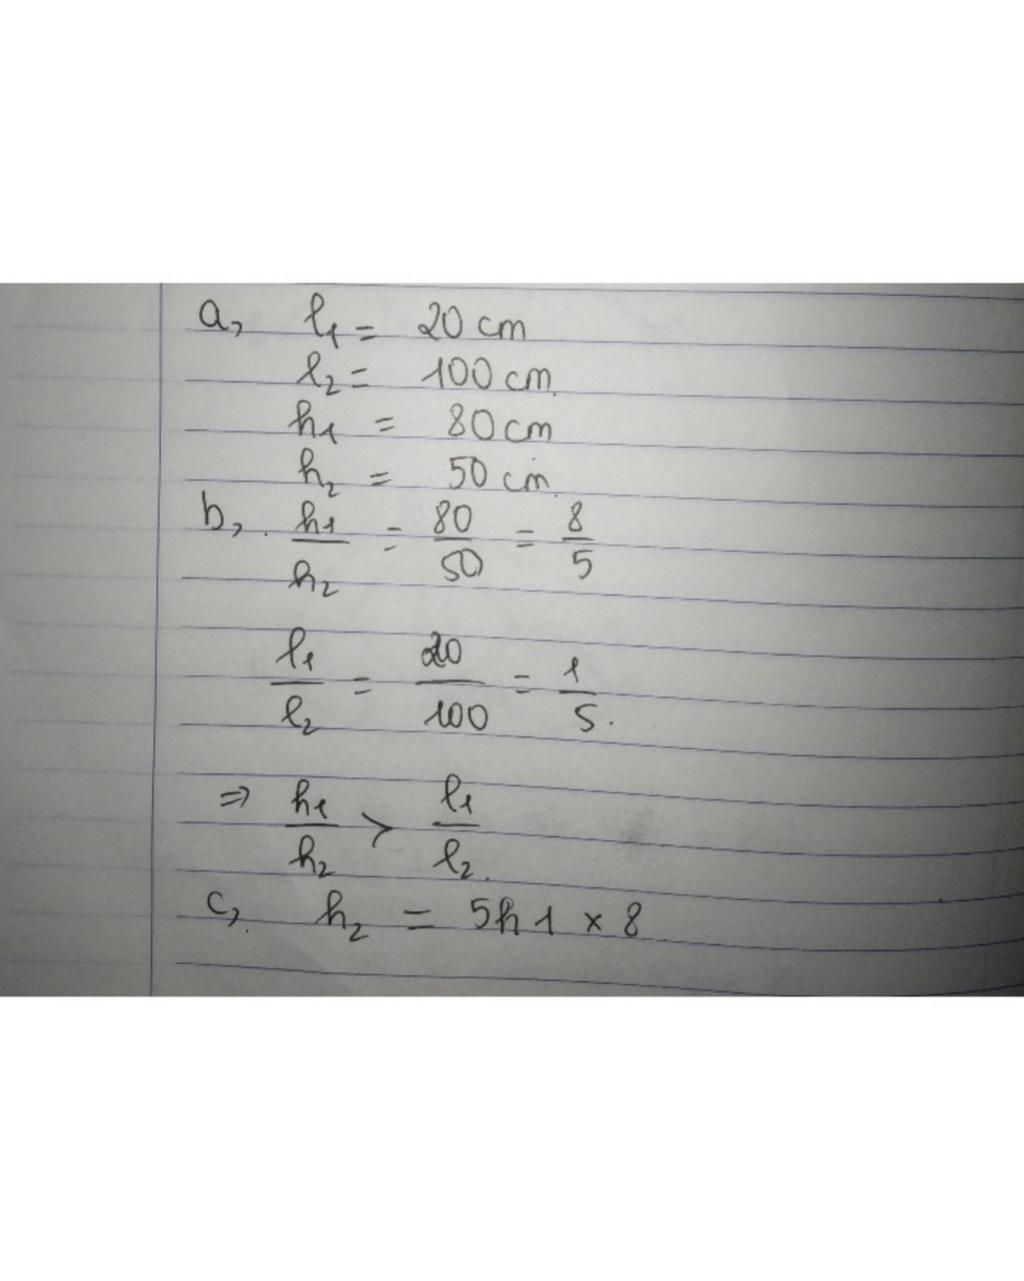 a, l1 = 20 cm
l2 = 100 cm.
h1 = 80 cm
h2 = 50 cm.
b, h1/h2 = 80/50 = 8/5
l1/l2 = 20/100 = 1/5.
⇒ h1/h2 > l1/l2.
c, h2 = 5h1 × 8